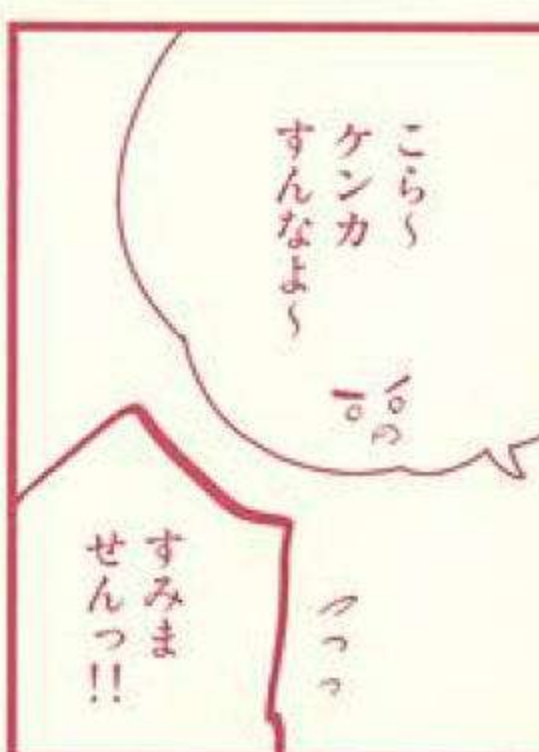 こら〜
ケンカ
すんなよ〜
すみま
せんっ!!